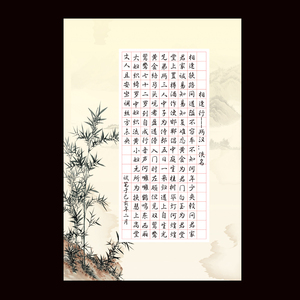 相逢行——两汉·佚名
相逢狭路间道隘不容车不知何年少夹毂问君家
君家诚易知易知复难忘黄金为君门白玉为君堂
堂上置樽酒作使邯郸倡中庭生桂树华灯何煌煌
兄弟两三人中子为侍郎五日一来归道上自生光
黄金络马头观者盈道傍入门时左顾但见双鸳鸯
鸳鸯七十二罗列自成行音声何噰噰鹤鸣东西厢
大妇织绮罗中妇织流黄小妇无所为挟瑟上高堂
丈人且安坐调丝方未央
己亥年二月